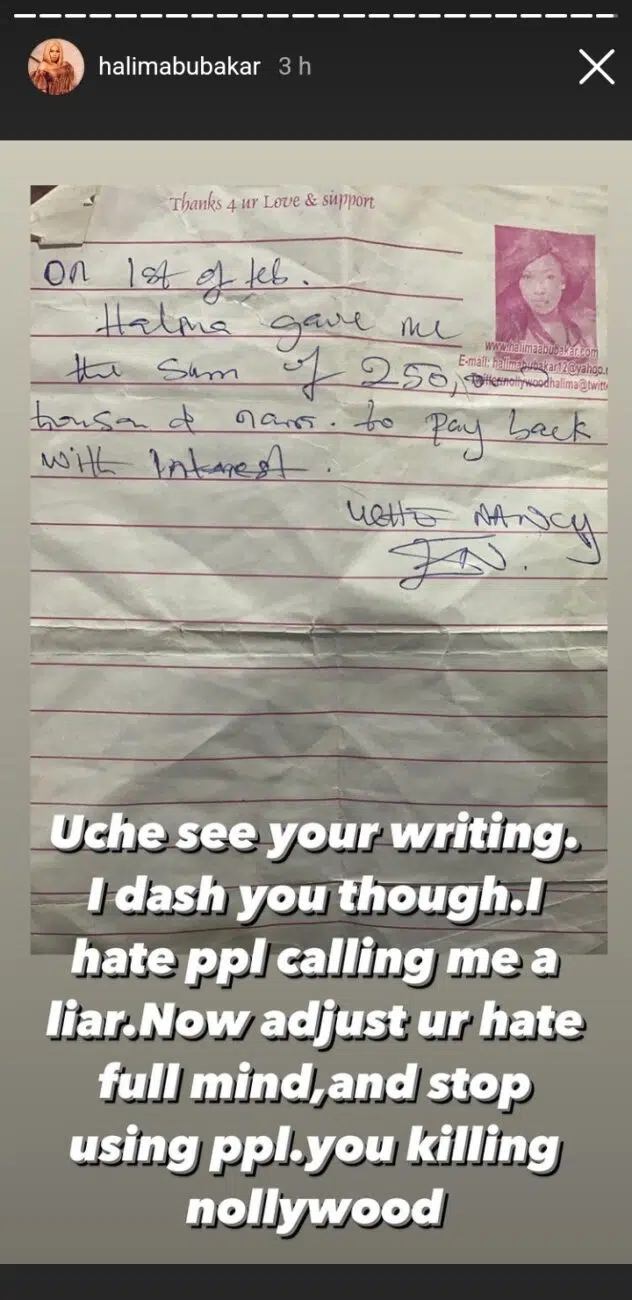 halimabubakar 3 h
Thanks 4 ur Love & support
On 1st of feb.
Halima gave me
www.halimaabubakar.com
the sum of 250,
E-mail: halimabubakar12@yahoo.
nollywoodhalima@twitt
thousand naira. to pay back
with Interest.
UCHE NANCY
Uche see your writing.
I dash you though.I
hate ppl calling me a
liar.Now adjust ur hate
full mind,and stop
using ppl.you killing
nollywood